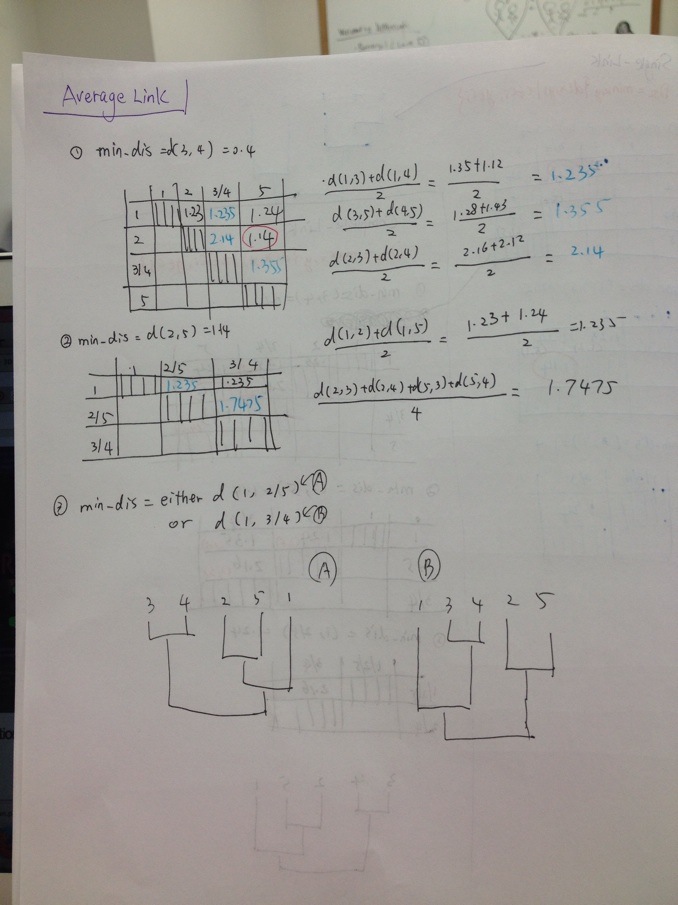 Average Link
① min-dis = d(3,4) = 0.4
1 2 3/4 5
1 1.23 1.235 1.24
2 2.14 1.14
3/4 1.355
5
d(1,3)+d(1,4) / 2 = 1.35+1.12 / 2 = 1.235
d(3,5)+d(4,5) / 2 = 1.28+1.43 / 2 = 1.355
d(2,3)+d(2,4) / 2 = 2.16+2.12 / 2 = 2.14
② min-dis = d(2,5) = 1.14
1 2/5 3/4
1 1.235 1.235
2/5 1.7475
3/4
d(1,2)+d(1,5) / 2 = 1.23+1.24 / 2 = 1.235
d(2,3)+d(2,4)+d(5,3)+d(5,4) / 4 = 1.7475
③ min-dis = either d(1, 2/5) ↙Ⓐ
or d(1, 3/4) ↙Ⓑ
Ⓐ Ⓑ
3 4 2 5 1
1 3 4 2 5